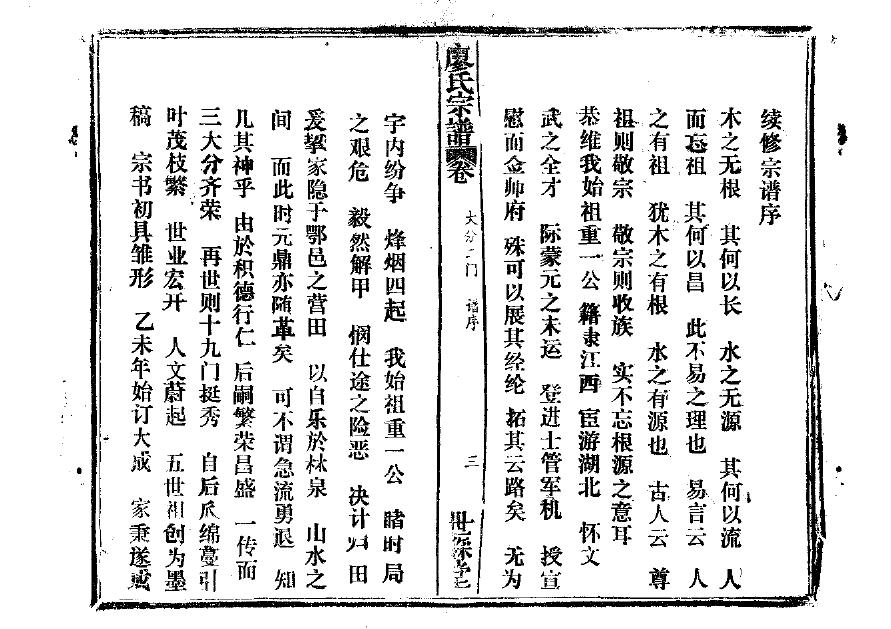 续修宗谱序
木之无根 其何以长 水之无源 其何以流 人
而忘祖 其何以昌 此不易之理也 易言云 人
之有祖 犹木之有根 水之有源也 古人云 尊
祖则敬宗 敬宗则收族 实不忘根源之意耳
恭维我始祖重一公 籍隶江西 宦游湖北 怀文
武之全才 际蒙元之末运 登进士管军机 授宣
慰而金帅府 殊可以展其经纶 拓其云路矣 无为
廖氏宗谱 卷
大分 门 谱序
三
宇内纷争 烽烟四起 我始祖重一公 睹时局
之艰危 毅然解甲 悯仕途之险恶 决计归田
爰挈家隐于鄂邑之营田 以自乐於林泉 山水之
间 而此时元鼎亦随革矣 可不谓急流勇退 知
几其神乎 由於积德行仁 后嗣繁荣昌盛 一传而
三大分齐荣 再世则十九门挺秀 自后瓜绵蔓引
叶茂枝繁 世业宏开 人文蔚起 五世祖创为墨
稿 宗书初具雏形 乙未年始订大成 家乘遂成